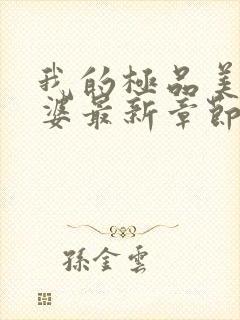 我的極品美
婆最新章節
孫金雲